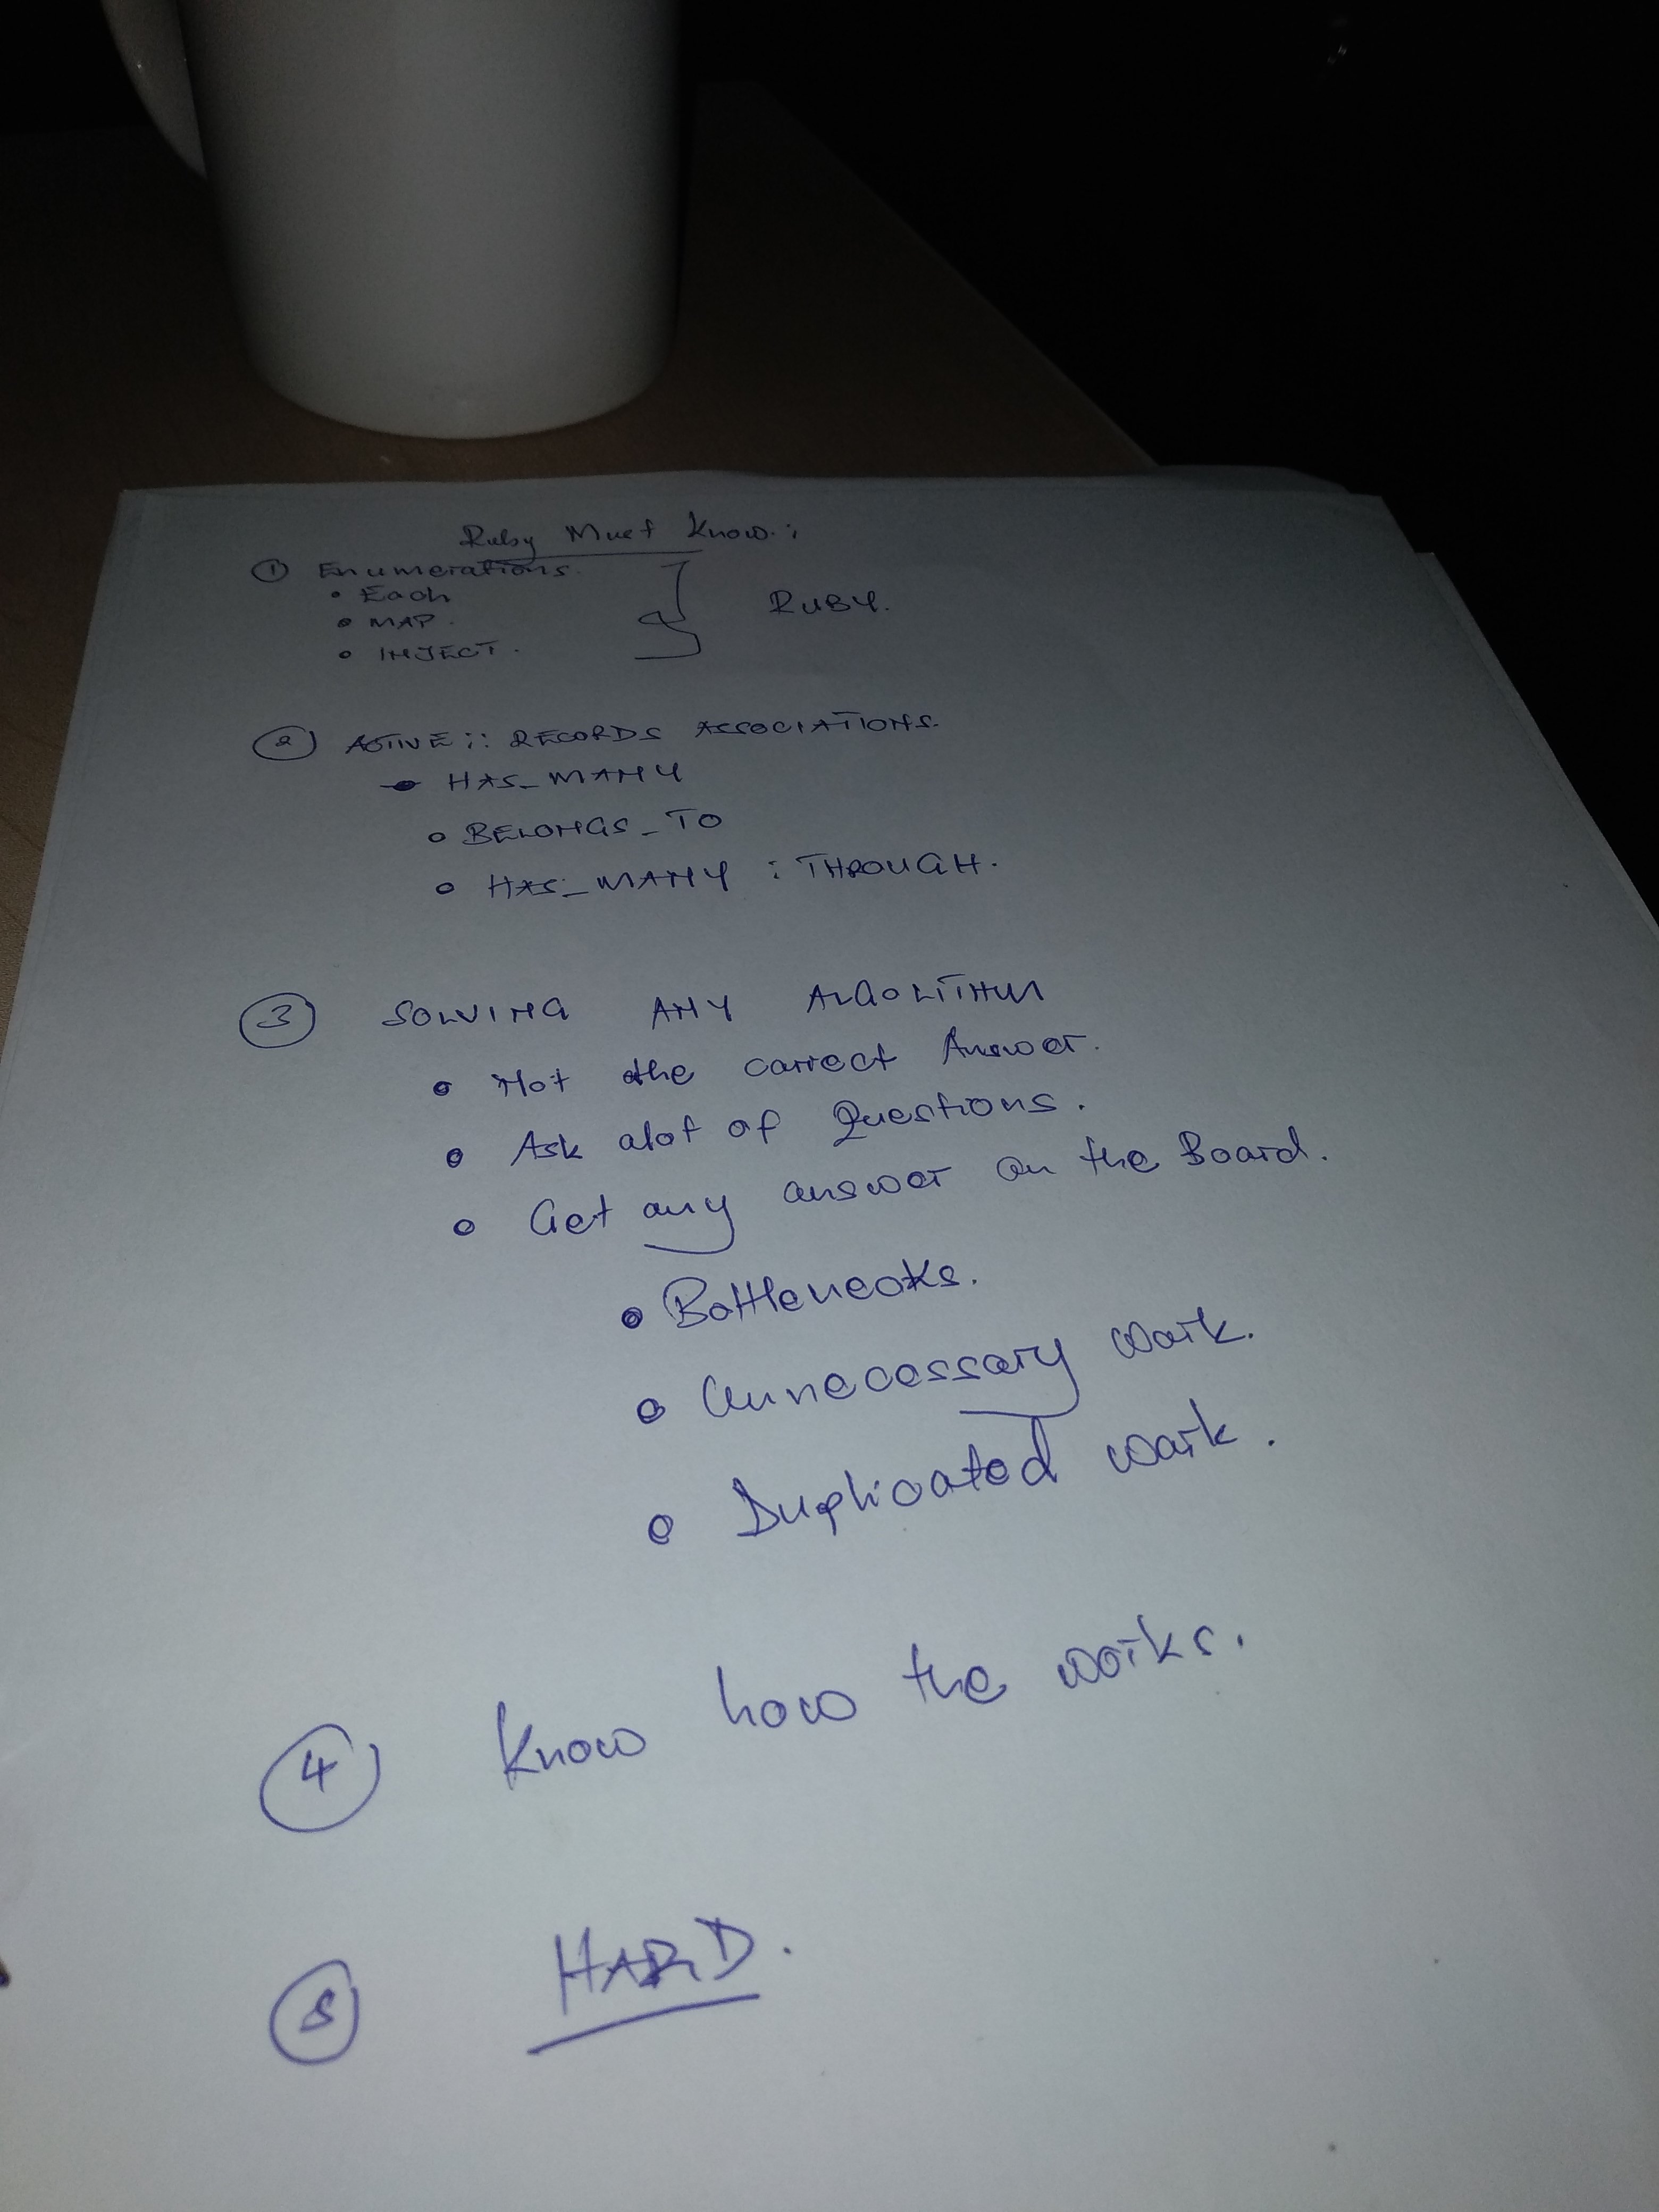 Ruby Must Know :
① Enumerations.
• Each
• MAP.
• INJECT.
RUBY.
② ACTIVE :: RECORDS ASSOCIATIONS.
• HAS_MANY
• BELONGS_TO
• HAS_MANY : THROUGH.
③ SOLVING ANY ALGOLITHM
• Not the correct Answer.
• Ask alot of Questions.
• Get any answer on the Board.
• Bottlenecks.
• Unnecessary work.
• Duplicated work.
④ Know how the works.
⑤ HARD.